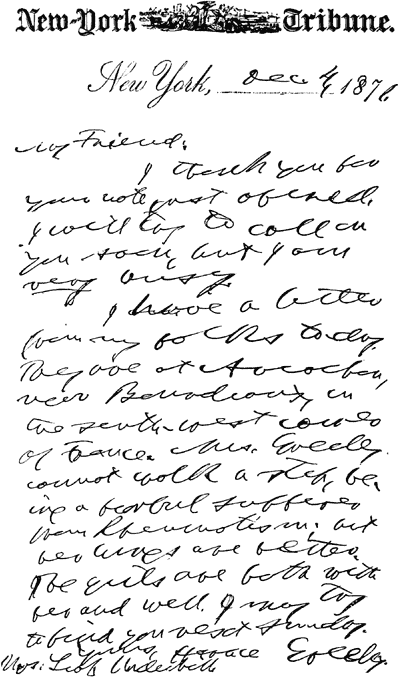 New-York Tribune.
New York, Dec 4, 187
My Friend:
I thank you for
your note just opened.
I will try to call on
you soon, but I am
very busy.
I have a letter
from my folks today.
They are at Arcachon,
near Bordeaux, in
the south-west corner
of France. Mrs. Greeley
cannot walk a step, be-
ing a fearful sufferer
from Rheumatism; but
her lungs are better.
The girls are both with
her and well. I may try
to find you next Sunday.
Yours, Horace Greeley.
Mrs. Underhill